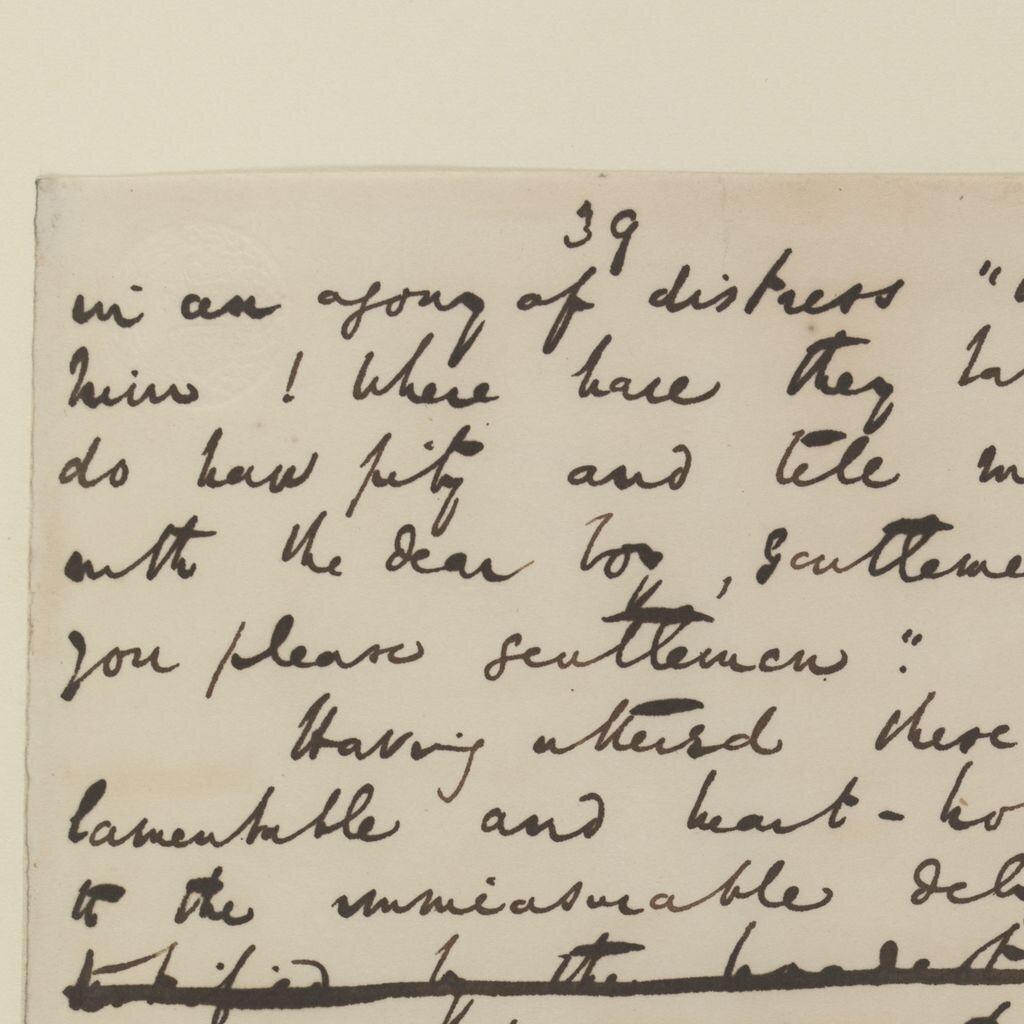 39
in an agony of distress "
him ! Where have they
do have pity and tell
with the dear boy, Gentleme
you please gentlemen."
Having uttered these
lamentable and heart-
to the immeasurable del
by the